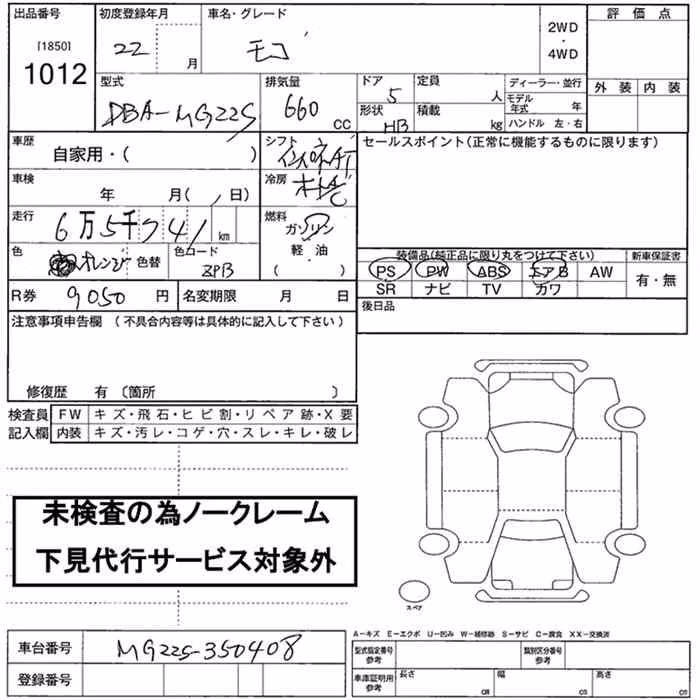 出品番号 初度登録年月 車名・グレード 評価点
[1850] 1012 22 月 モコ 2WD・4WD
型式 排気量 ドア 定員 ディーラー・並行 外装 内装
DBA-MG22S 660 CC 5 人 モデル年式 年
形状 HB 積載 kg ハンドル 左・右
車歴 シフト セールスポイント(正常に機能するものに限ります)
自家用・( ) インパネAT
車検 冷房
年 月( , 日) オートA/C
走行 燃料
6万5千 741 km ガソリン
色 オレンジ 色替 色コード ZPB 軽・油 ( )
装備品(純正品に限り丸をつけて下さい) 新車保証書
PS PW ABS エアB AW 有・無
SR ナビ TV カワ
R券 9050 円 名変期限 月 日 後日品
注意事項申告欄 (不具合内容等は具体的に記入して下さい)
修復歴 有 〔箇所 〕
検査員 FW キズ・飛石・ヒビ割・リペア跡・X要
記入欄 内装 キズ・汚レ・コゲ・穴・スレ・キレ・破レ
未検査の為ノークレーム
下見代行サービス対象外
スペア
A-キズ E-エクボ U-凹み W-補修跡 S-サビ C-腐食 XX-交換済
車台番号 MG22S-350408 型式指定番号 参考 類別区分番号 参考
登録番号 車庫証明用 参考 長さ cm 幅 cm 高さ cm